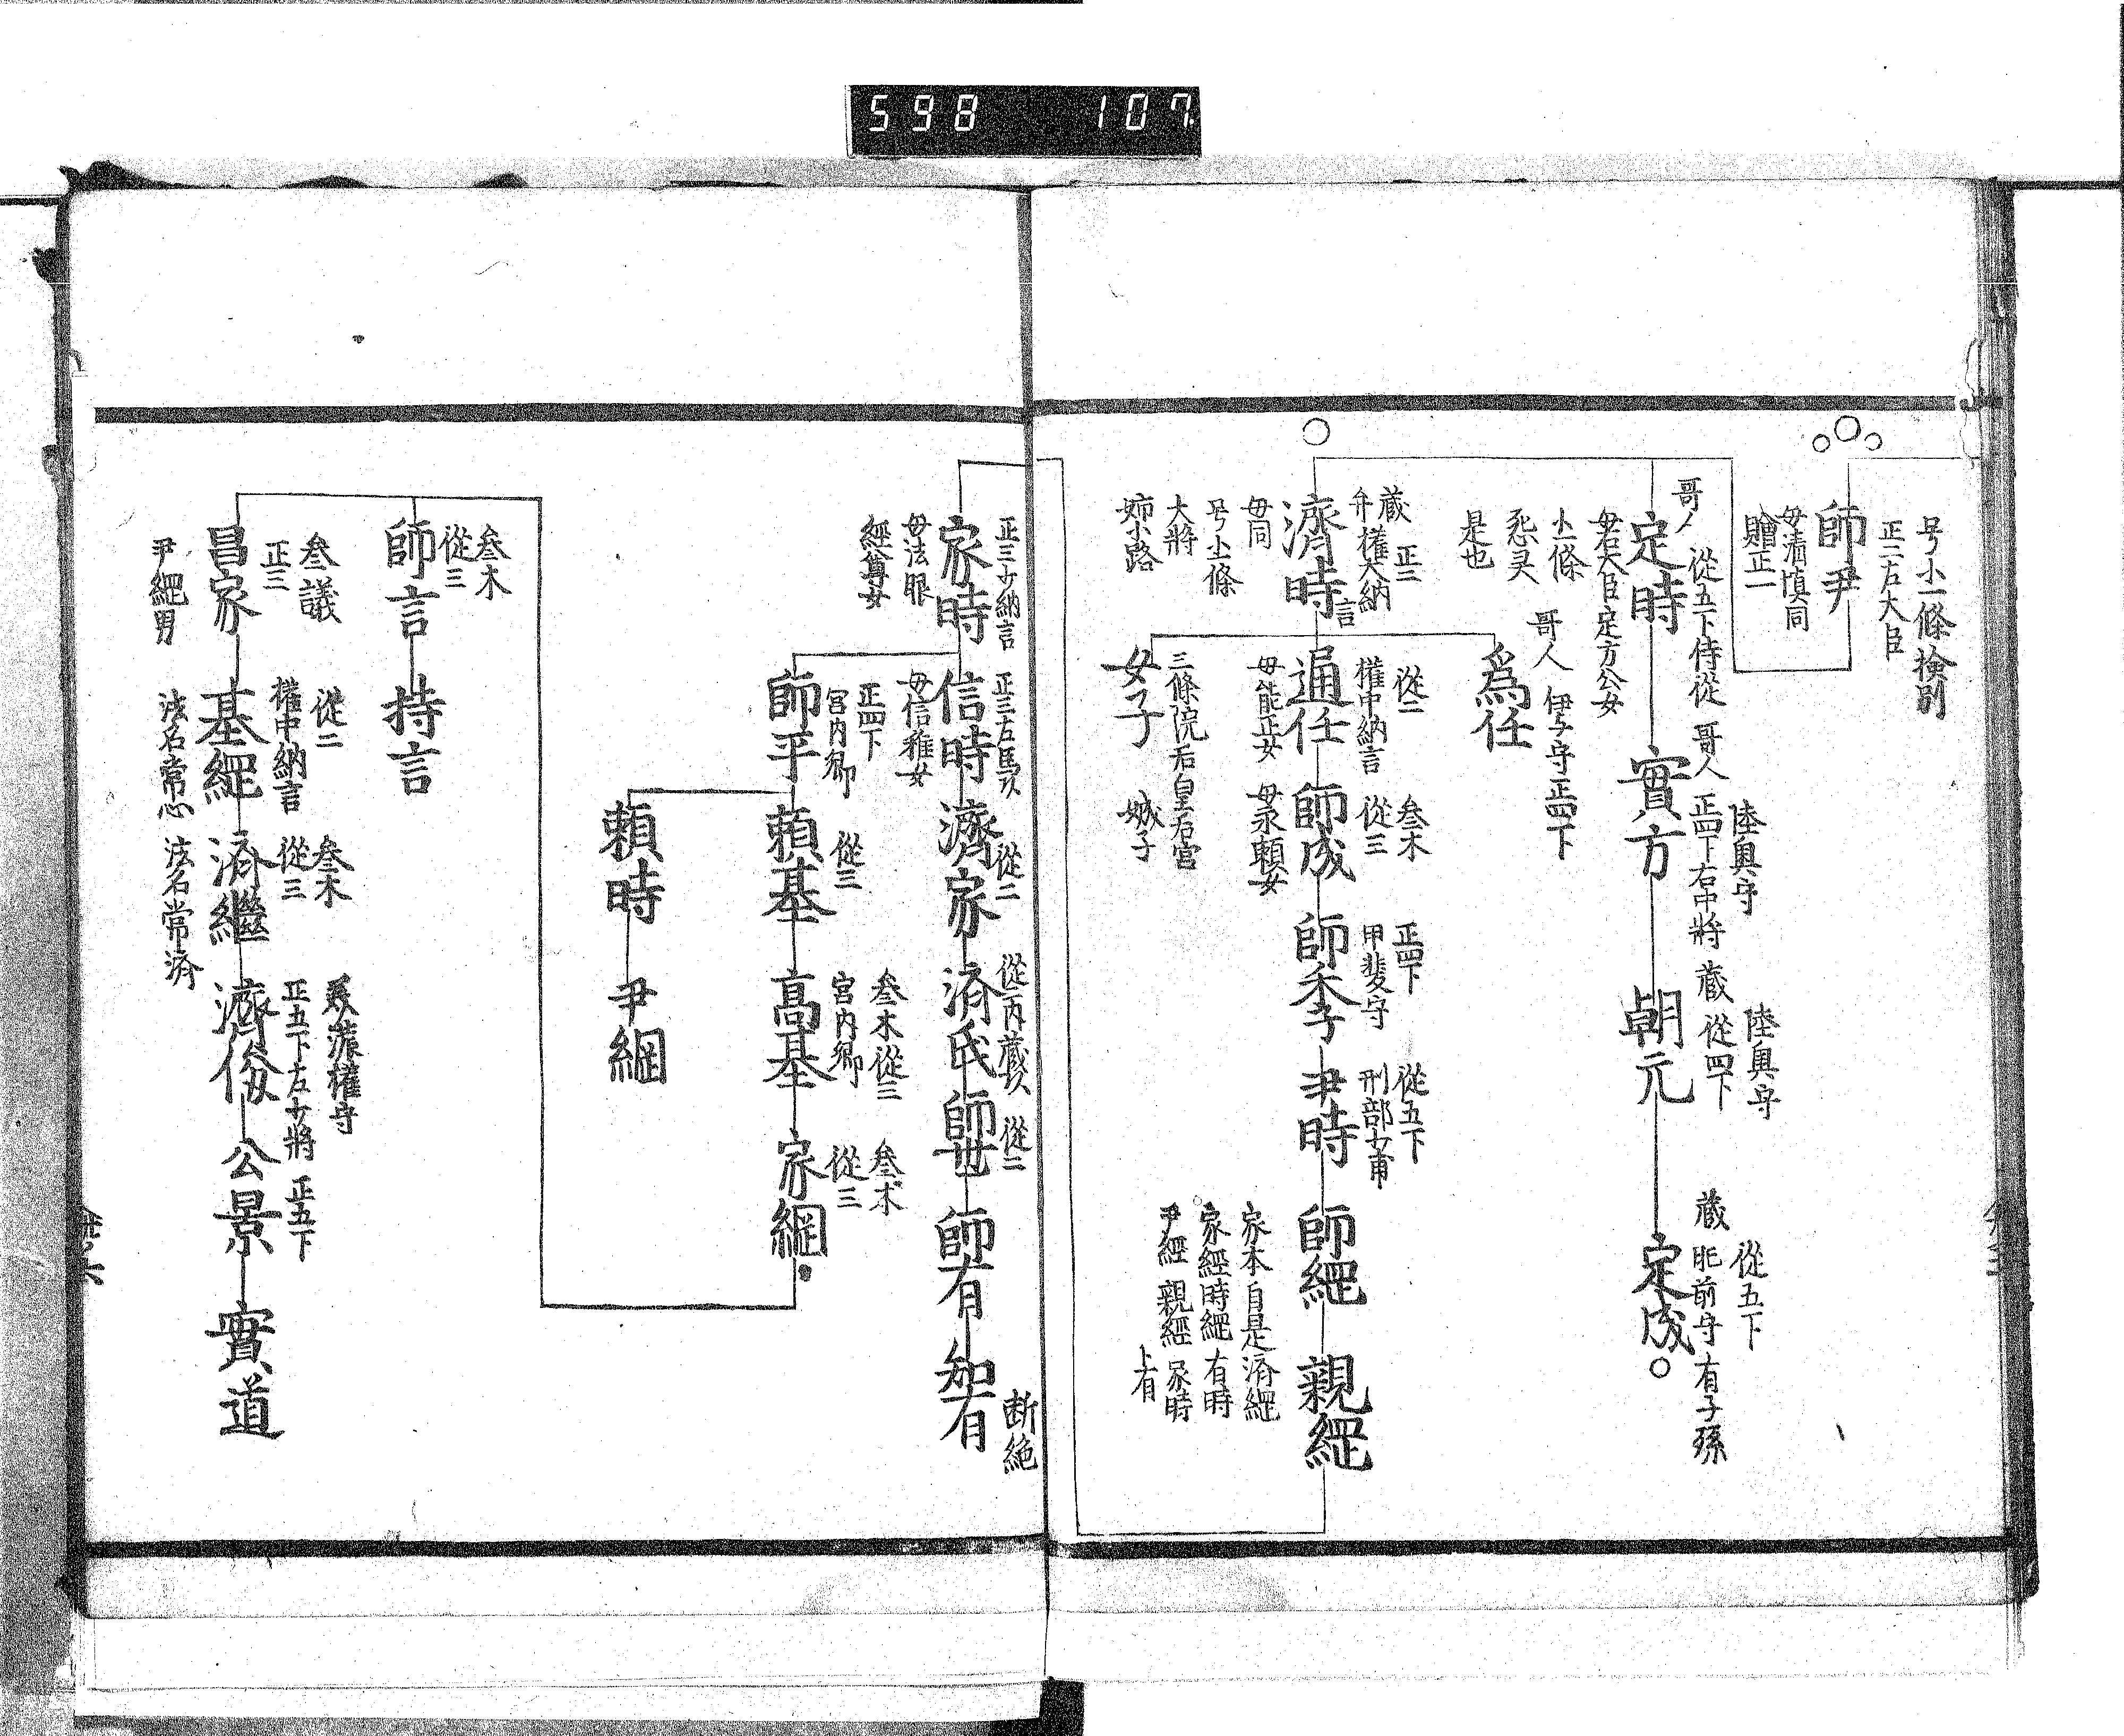 598 107
号小一條 検別
正二左大臣
師尹
母清慎同
贈正一
哥人
從五下侍從
定時
母右大臣定方公女
哥人
陸奥守
正四下右中將
實方
陸奥守
藏 從四下
朝元
從五下
藏 肥前守 有子孫
定成
小一條
怨灵
是也
藏 正二
弁 權大納言
濟時
母同
号小一條
大將
姉小路
哥人 伊与守正四下
爲任
從二
權中納言
通任
母能正女
三條院后皇后宮
女子 娍子
叅木
從三
師成
母永頼女
正四下
甲斐守
師季
從五下
刑部少甫
尹時
師經
家本自是済經
家經時經 有時
尹經 親經 家時
上有
親經
正三少納言
家時
母法眼
經尊女
正三右馬頭
信時
母信雅女
從二
濟家
濟氏
從二
師世
師有
知有
断絶
正四下
宮内卿
師平
從三
頼基
叅木從三
宮内卿
高基
叅木
從三
家綱
頼時
尹綱
叅木
從三
師言
持言
叅議
正三
昌家
尹綱男
從二
權中納言
基綱
法名常心
叅木
從三
済繼
法名常済
正五下左少將
濟俊
正五下
公景
實道